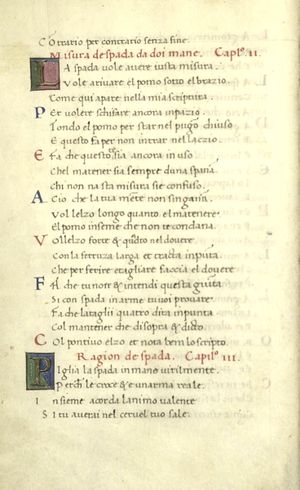 Cōtrario per contrario senza fine.
Misura de spada da doi mane. Caplo. II.
LA spada vole avere iusta misura
Vole arivare el pomo sotto el brazio.
Come qui apare nella mia scriptura
Per volere schifare ancora inpazio
Tondo el pomo per star nel pugō chiuso
E questo fa per non intrar nel lacio.
E fa che questo sia ancora in uso
Chel matener sia sempre duna spana
Chi non na sta misura sie confuso.
A Cio che la tua mēte non singanī
Vol lelzo longo quanto el matenere
El pomo insieme che non te condana.
Vol lelzo forte & q̄dro nel dovere
Con la ferruza larga et tracta in puta.
Che per ferire et agliare faccia el dovere
Fa che tu note & intendi questa giūta
Si con spada in arme tu voi provare
Fa che la tagli quatro dita in punta
Col mantener che disopra & dicto.
Col pontivo elzo et nota bem lo scripto.
Ragion de spada. Caplo. III.
Piglia la spada in mano virilmente.
Perche le croce & e un arma reale.
Insieme acorda lanimo valente
Si tu averai nel cervel tuo sale